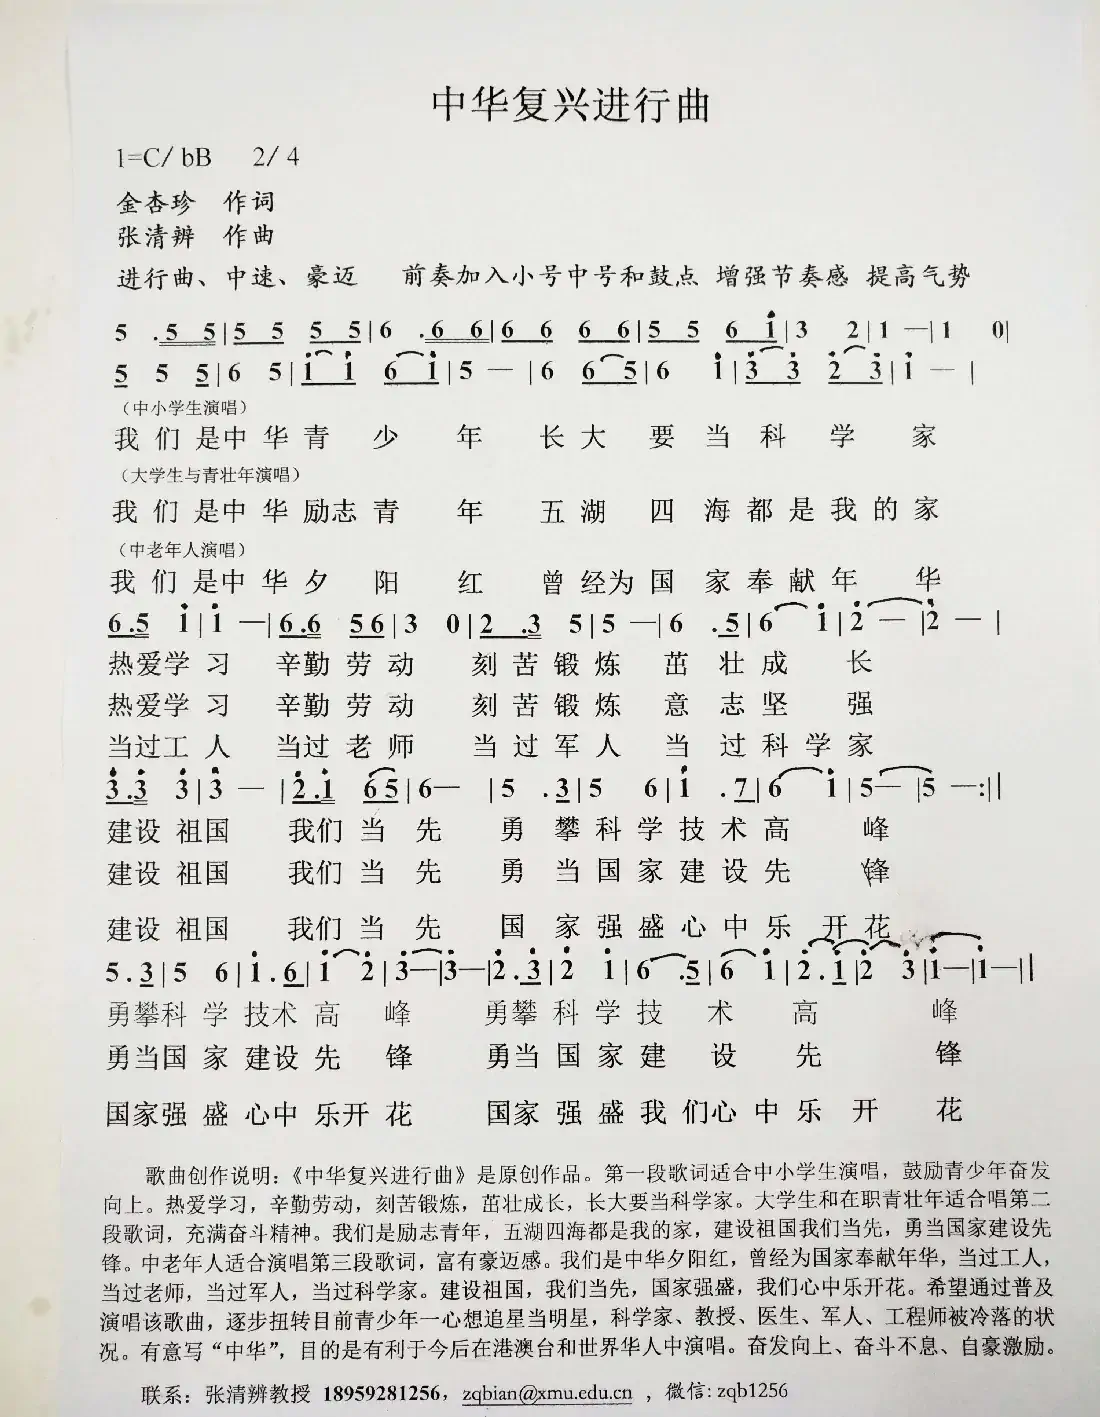 中华复兴进行曲
1=C/ bB 2/ 4
金杏珍 作词
张清辨 作曲
进行曲、中速、豪迈 前奏加入小号中号和鼓点 增强节奏感 提高气势
5 .5 5|5 5 5 5|6 .6 6|6 6 6 6|5 5 6 i|3 2|1 —|1 0|
5 5 5|6 5|i i 6 i|5 — |6 6 5|6 i|3 3 2 3|i — |
（中小学生演唱）
我 们 是中 华 青 少 年 长 大 要 当 科 学 家
（大学生与青壮年演唱）
我 们 是中 华 励志 青 年 五 湖 四 海 都 是 我 的 家
（中老年人演唱）
我 们 是中 华 夕 阳 红 曾 经为 国 家 奉 献 年 华
6.5 i|i —|6.6 56|3 0|2 .3 5|5 —|6 .5|6 i|2 — |2 — |
热爱学 习 辛勤 劳 动 刻 苦 锻 炼 茁 壮 成 长
热爱学 习 辛勤 劳 动 刻 苦 锻 炼 意 志 坚 强
当过工 人 当过 老 师 当 过 军 人 当 过 科 学 家
3.3 3|3 — |2.i 65|6— |5 .3|5 6|i .7|6 i|5— |5 —:||
建设 祖国 我们 当 先 勇 攀 科 学 技 术 高 峰
建设 祖国 我们 当 先 勇 当 国 家 建 设 先 锋
建设 祖国 我们 当 先 国 家 强 盛 心 中 乐 开 花
5.3|5 6|i.6|i 2|3—|3—|2.3|2 i|6 .5|6 i|2.i|2 3|i—|i—||
勇攀科 学 技术 高 峰 勇攀 科 学 技 术 高 峰
勇当国 家 建设 先 锋 勇当 国 家 建 设 先 锋
国家强 盛 心中 乐开 花 国家 强 盛 我 们心 中 乐 开 花
歌曲创作说明：《中华复兴进行曲》是原创作品。第一段歌词适合中小学生演唱，鼓励青少年奋发
向上。热爱学习，辛勤劳动，刻苦锻炼，茁壮成长，长大要当科学家。大学生和在职青壮年适合唱第二
段歌词，充满奋斗精神。我们是励志青年，五湖四海都是我的家，建设祖国我们当先，勇当国家建设先
锋。中老年人适合演唱第三段歌词，富有豪迈感。我们是中华夕阳红，曾经为国家奉献年华，当过工人，
当过老师，当过军人，当过科学家。建设祖国，我们当先，国家强盛，我们心中乐开花。希望通过普及
演唱该歌曲，逐步扭转目前青少年一心想追星当明星，科学家、教授、医生、军人、工程师被冷落的状
况。有意写“中华”，目的是有利于今后在港澳台和世界华人中演唱。奋发向上、奋斗不息、自豪激励。
联系：张清辨教授 18959281256，zqbian@xmu.edu.cn ，微信: zqb1256